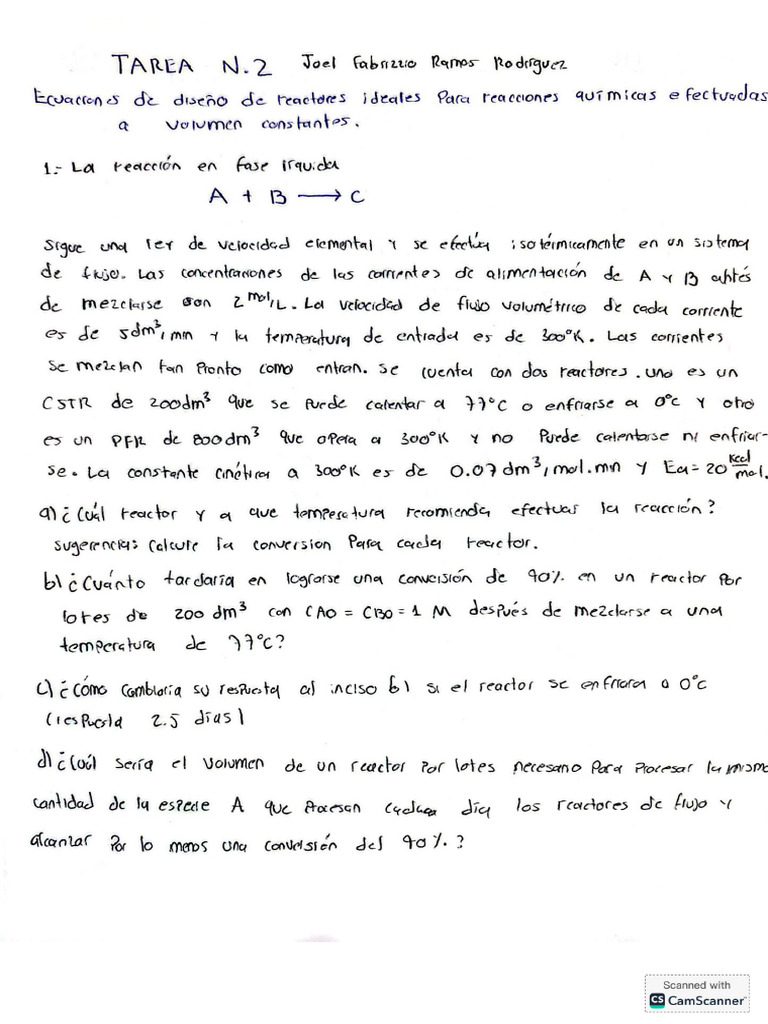 TAREA N.2 Joel Fabrizzio Ramos Rodriguez
Ecuaciones de diseño de reactores ideales para reacciones químicas efectuadas
a volumen constantes.
1.- La reacción en fase líquida
A + B ⟶ C
Sigue una ley de velocidad elemental y se efectúa isotérmicamente en un sistema
de flujo. Las concentraciones de las corrientes de alimentación de A y B antes
de mezclarse son 2 mol/L. La velocidad de flujo volumétrico de cada corriente
es de 5dm³/min y la temperatura de entrada es de 300°K. Las corrientes
se mezclan tan pronto como entran. se cuenta con dos reactores. uno es un
CSTR de 200dm³ que se puede calentar a 77°C o enfriarse a 0°C y otro
es un PFR de 800dm³ que opera a 300°K y no puede calentarse ni enfriar-
se. La constante cinética a 300°K es de 0.07 dm³/mol.mn y Ea=20 kcal/mol.
a) ¿Cuál reactor y a que temperatura recomienda efectuar la reacción?
sugerencia: calcule la conversion para cada reactor.
b) ¿Cuánto tardaria en lograrse una conversión de 90% en un reactor por
lotes de 200 dm³ con CAO = CBO = 1 M después de mezclarse a una
temperatura de 77°C?
c) ¿Cómo cambiaria su respuesta al inciso b) si el reactor se enfriara a 0°C
(respuesta 2.5 días)
d) ¿Cuál sería el volumen de un reactor por lotes necesario para procesar la misma
cantidad de la especie A que procesan cada día los reactores de flujo y
alcanzar por lo menos una conversión del 90%.?
Scanned with
CS CamScanner